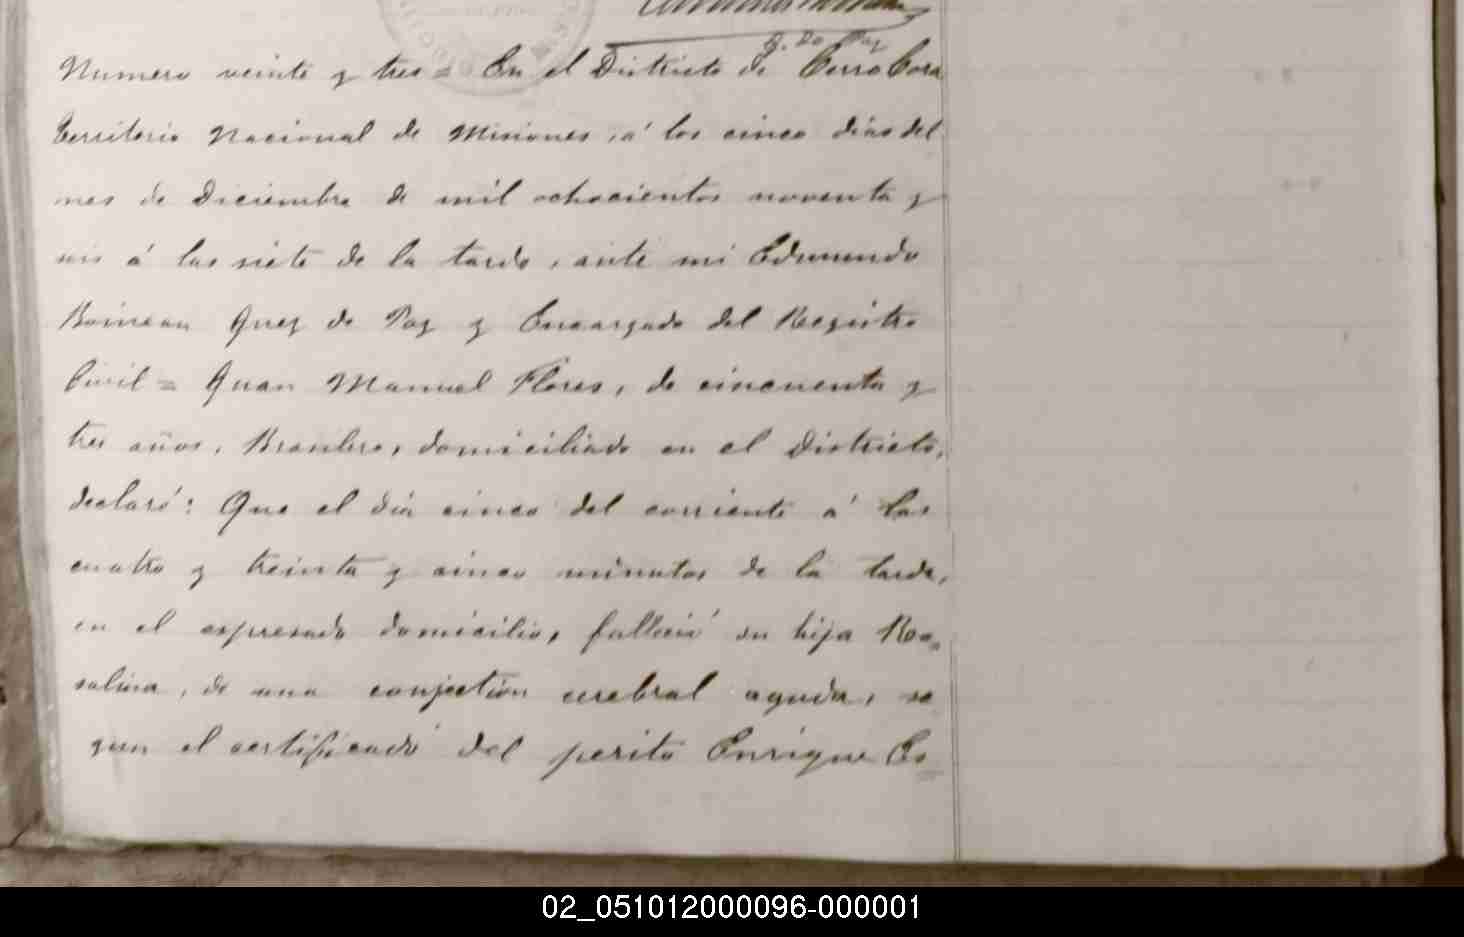 J. de Paz
Numero veinte y tres = En el Districto de Cerro Cora
Territorio Nacional de Misiones, á los cinco dias del
mes de Diciembre de mil ochocientos noventa y
seis á las siete de la tarde, ante mi Edmundo
Boineau Juez de Paz y Encargado del Registro
Civil = Juan Manuel Flores, de cincuenta y
tres años, Brasilero, domiciliado en el Districto,
declaró: Que el dia cinco del corriente á las
cuatro y treinta y cinco minutos de la tarde,
en el espresado domicilio, falleció su hija Ro=
salina, de una conjection cerebral aguda, se
gun el certificado del perito Enrique Es=
02_051012000096-000001